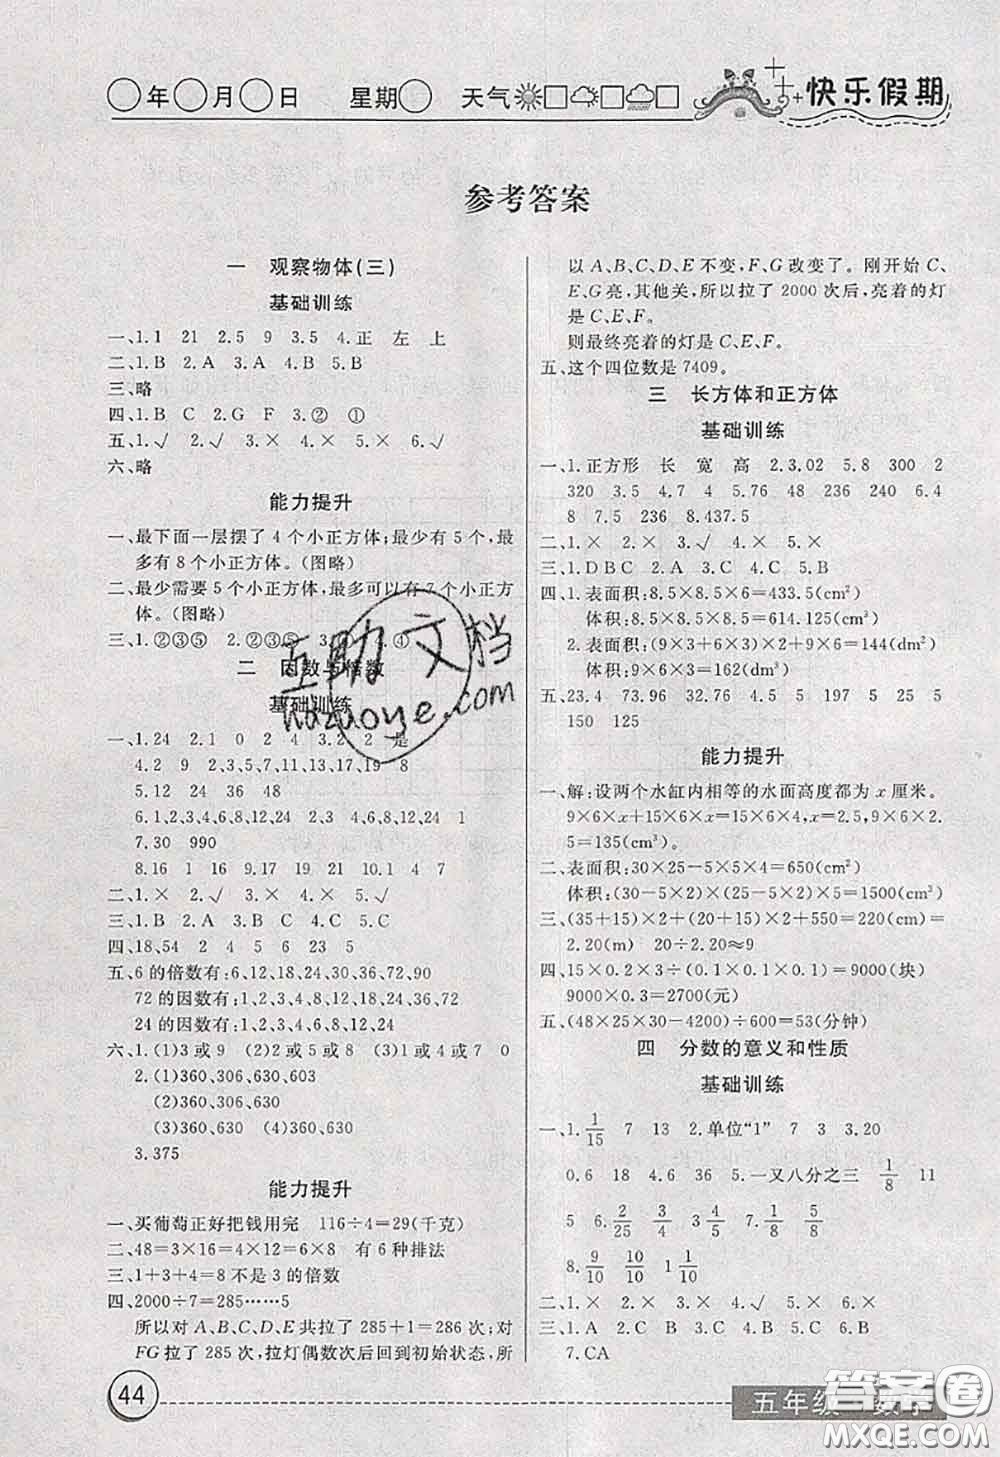 年 月 日 星期 天气
快乐假期
参考答案
一 观察物体(三)
基础训练
一、1.1 21 2.5 9 3.5 4.正 左 上
二、1.B 2.A 3.A 4.B 5.B
三、略
四、1.B C 2.G F 3.② ①
五、1.√ 2.√ 3.× 4.× 5.× 6.√
六、略
能力提升
一、最下面一层摆了 4 个小正方体;最少有 5 个,最
多有 8 个小正方体。(图略)
二、最少需要 5 个小正方体,最多可以有 7 个小正方
体。(图略)
三、1.②③⑤ 2.②③⑤ 3.①④
二 因数与倍数
基础训练
一、1.24 2.1 0 2 4 3.2 2 是
4.2 9 9、15、18 2、3、11、13、17、19 8
5.12 24 36 48
6.1、2、3、4、6、8、12、24 3、6、12、24 1
7.30 990
8.16 1 16 9 4 6 8 10.1 4 7
二、1.× 2.× 3.√ 4.× 5.√
三、1.B 2.A 3.B 4.B 5.B
四、18,54 2 4 5 6 23 5
五、6的倍数有:6、12、18、30、36、72、90
72 的因数有:1、2、3、4、6、8、12、18、36、72
24 的因数有:1、2、3、4、6、8、12
六、1.(1)3 或 9 (2)2 或 5 或 8 (3)1 或 4 或 7 0
2.(1)360、306、630、603
(2)360、306、630
(3)360、630
(4)360、630
3.375
能力提升
一、买葡萄正好把钱用完 116÷4=29(千克)
二、48=3×16=4×12=6×8 有 6 种排法
三、1+3+4=8 不是 3 的倍数
四、2000÷7=285……5
所以对 A、B、C、D、E 共拉了 285+1=286 次;对
FG 拉了 285 次,拉灯偶数次后回到初始状态,所
以 A、B、C、D、E 不变,F、G 改变了。刚开始 C、
E、G 亮,其他关,所以拉了 2000 次后,亮着的灯
是 C、E、F。
则最终亮着的灯是 C、E、F。
五、这个四位数是 7409。
三 长方体和正方体
基础训练
一、1.正方形 长 宽 高 2.3.02 5.8 300 2
320 3.5 4.7 4 5.76 48 236 240 6.4
8 7.5 236 8.437.5
二、1.× 2.× 3.√ 4.× 5.×
三、1.D B C 2.A 3.A 4.C 5.B
四、1.表面积:8.5×8.5×6=433.5(cm²)
体积:8.5×8.5×8.5=614.125(cm³)
2.表面积:(9×3+6×3)×2+9×6=144(dm²)
体积:9×6×3=162(dm³)
五、23.4 73.96 32 4.5 5 197 5 25 5
150 125
能力提升
一、解:设两个水缸内相等的水面高度都为 x 厘米。
9×6×x+15×6×x=15×6×4,x=2.5,9×6×2.
5=135(cm³)。
二、表面积:30×25-5×5×4=650(cm²)
体积:(30-5×2)×(25-5×2)×5=1500(cm³)
三、(35+15)×2+(20+15)×2+550=220(cm)=
2.20(m) 20÷2.20≈9
四、15×0.2×3÷(0.1×0.1×0.1)=9000(块)
9000×0.3=2700(元)
五、(48×25×30-4200)÷600=53(分钟)
四 分数的意义和性质
基础训练
一、1. 1/15 7 13 2.单位“1” 7 3 3.20
0.6 18 4.6 36 5.一又八分之三 1/8 11
5 6. 2/25 3/4 3 4/5 7. 1/8 5/8
8. 9/10 10/10 1 1/10
二、1.× 2.× 3.× 4.√ 5.× 6.×
三、1.A 2.C 3.A 4.D 5.C 6.B
7.CA
互助文档
hazuoye.com
44
五年级 数学
答案圈
MXQE.COM